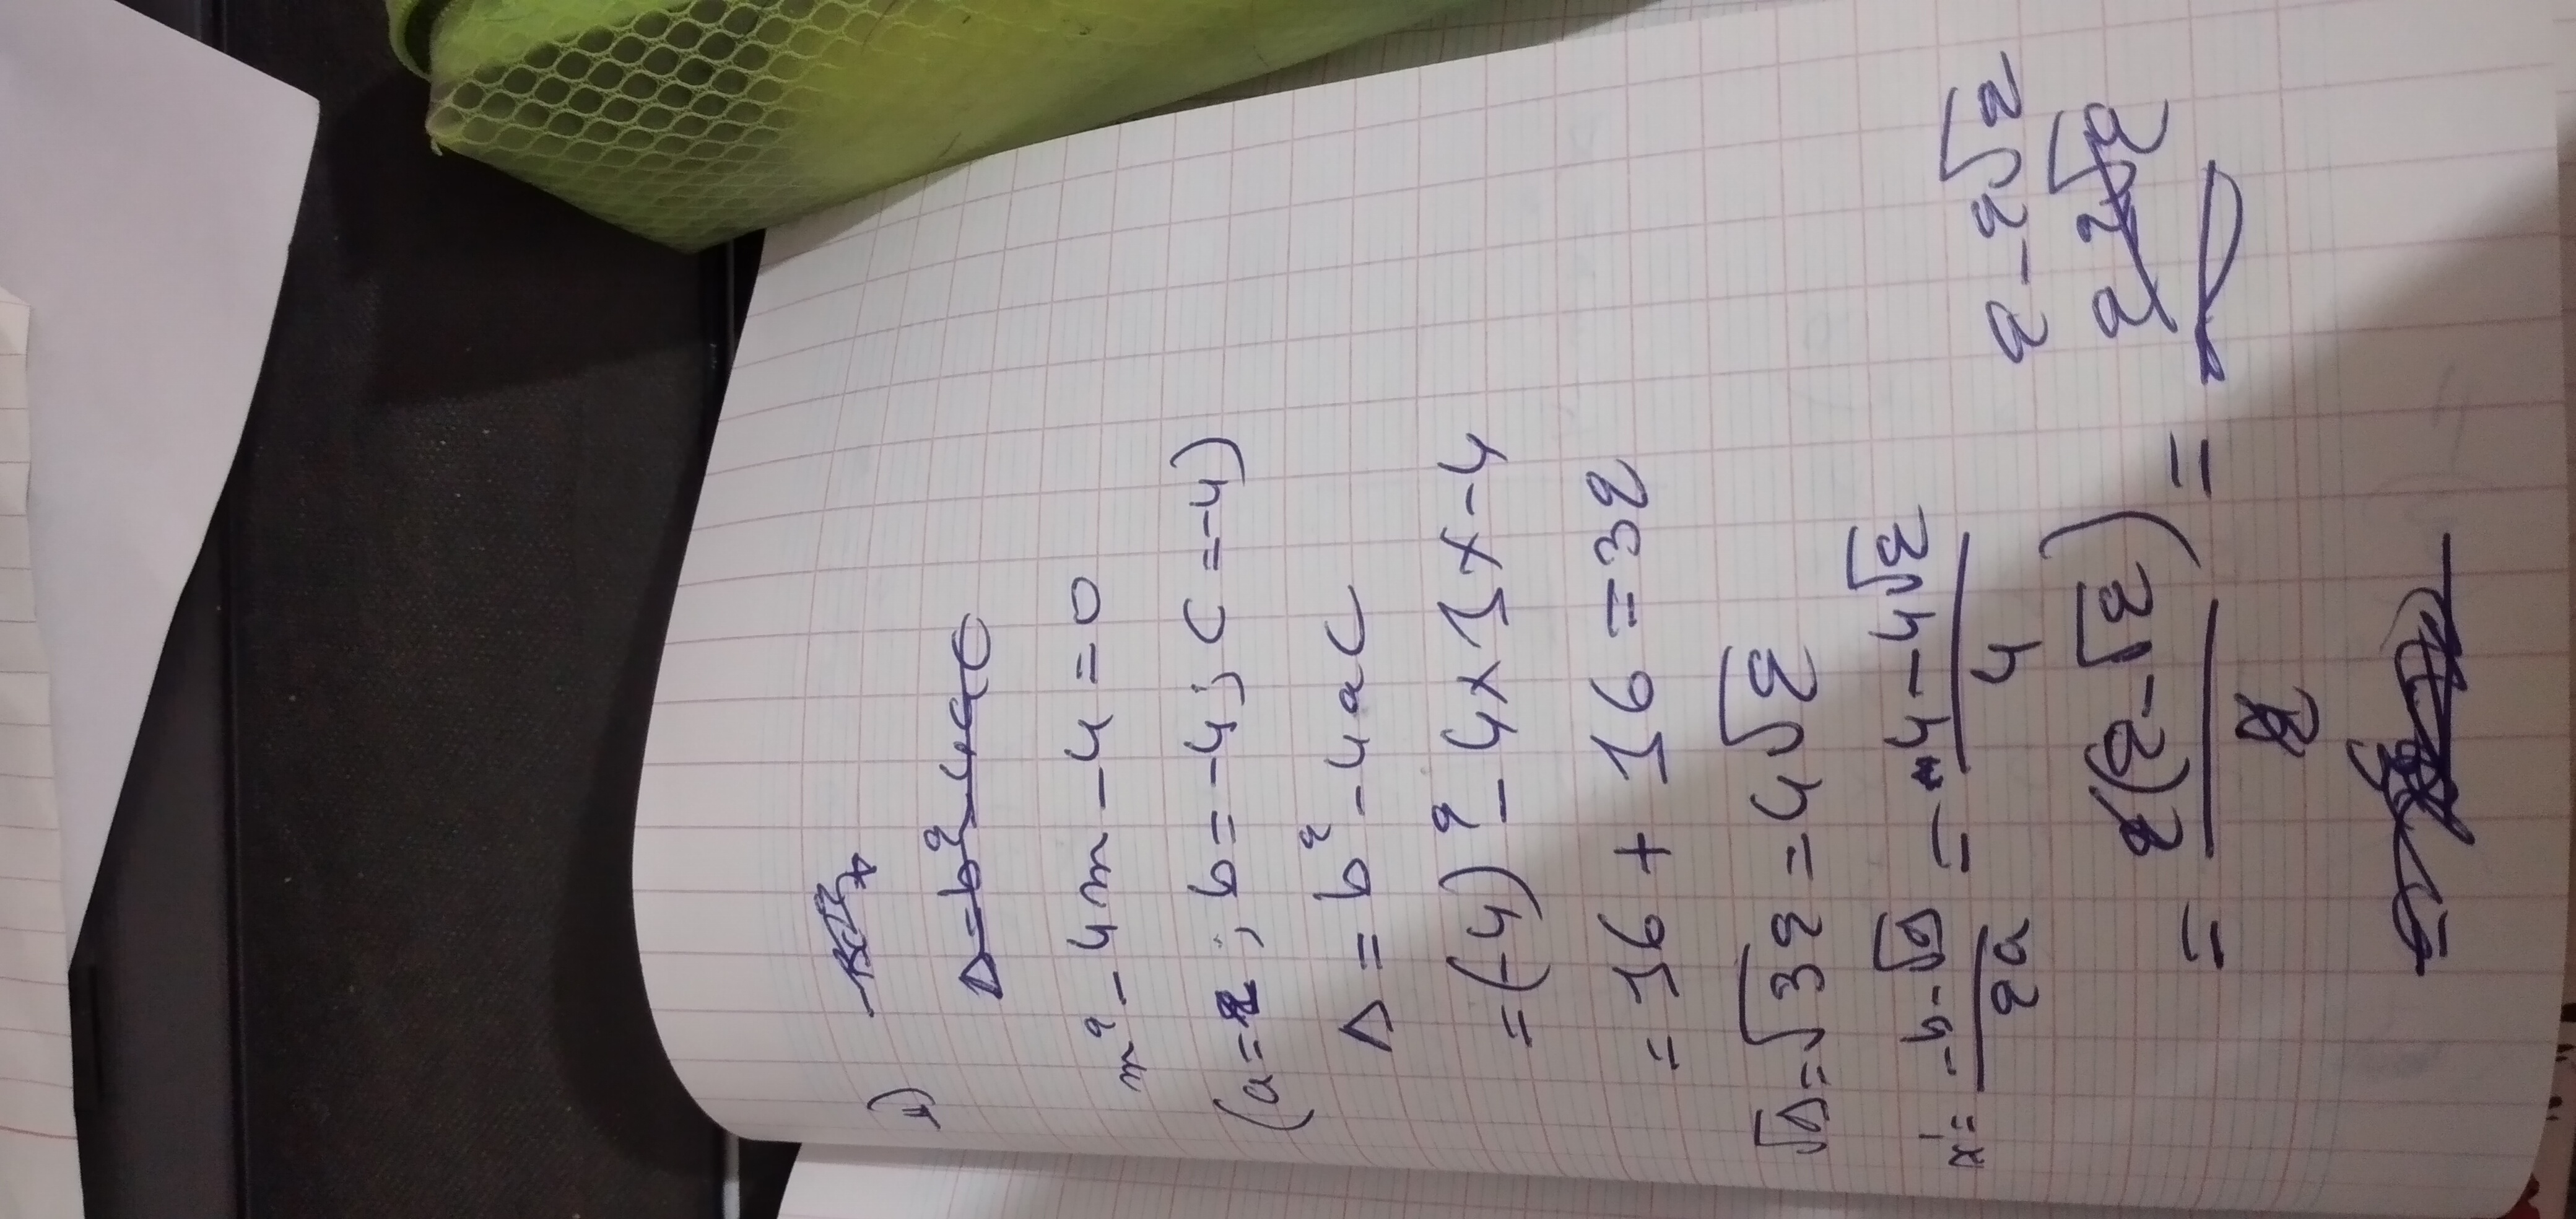 1)
Δ = b² - 4ac
m² - 4m - 4 = 0
(a = 1 ; b = -4 ; c = -4)
Δ = b² - 4ac
= (-4)² - 4 x 1 x -4
= 16 + 16 = 32
√Δ = √32 = 4√2
x' = (-b - √Δ)/2a = (4 - 4√2)/4
= 2(2 - √2)/2 = 2 - 2√2
2 2√2